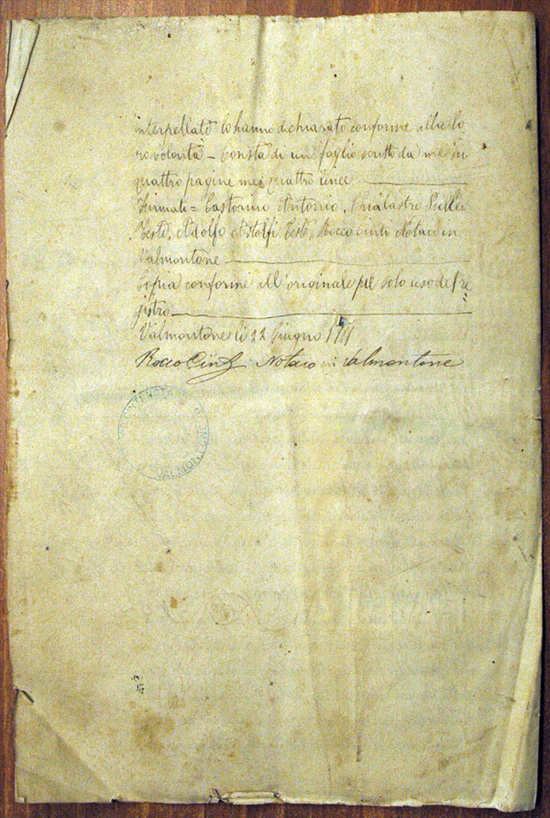 interpellato lo hanno dichiarato conforme alla lo
ro volontà = Consta di un foglio scritto da me in
quattro pagine meno quattro linee
Firmati = Antonio,
Teste, Adolfo Astolfi Teste, Rocco Cinti Notaio in
Valmontone
Copia conforme all'originale pel solo uso di Re=
gistro
Valmontone li 12 Giugno
Rocco Cinti Notaio in Valmontone